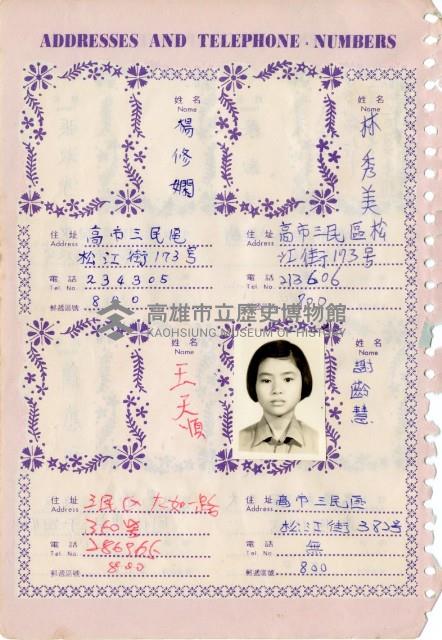 ADDRESSES AND TELEPHONE · NUMBERS
姓名
Name
楊修嫻
住址
Address
高市三民區
松江街173号
電話
Tel. No.
234305
郵遞區號
800
姓名
Name
林秀美
住址
Address
高市三民區松
江街173号
電話
Tel. No.
213606
郵遞區號
800
高雄市立歷史博物館
KAOHSIUNG MUSEUM OF HISTORY
姓名
Name
王天順
住址
Address
三民区大如一路
360号
電話
Tel. No.
286966
郵遞區號
800
姓名
Name
謝齡慧
住址
Address
高市三民區
松江街382号
電話
Tel. No.
無
郵遞區號
800